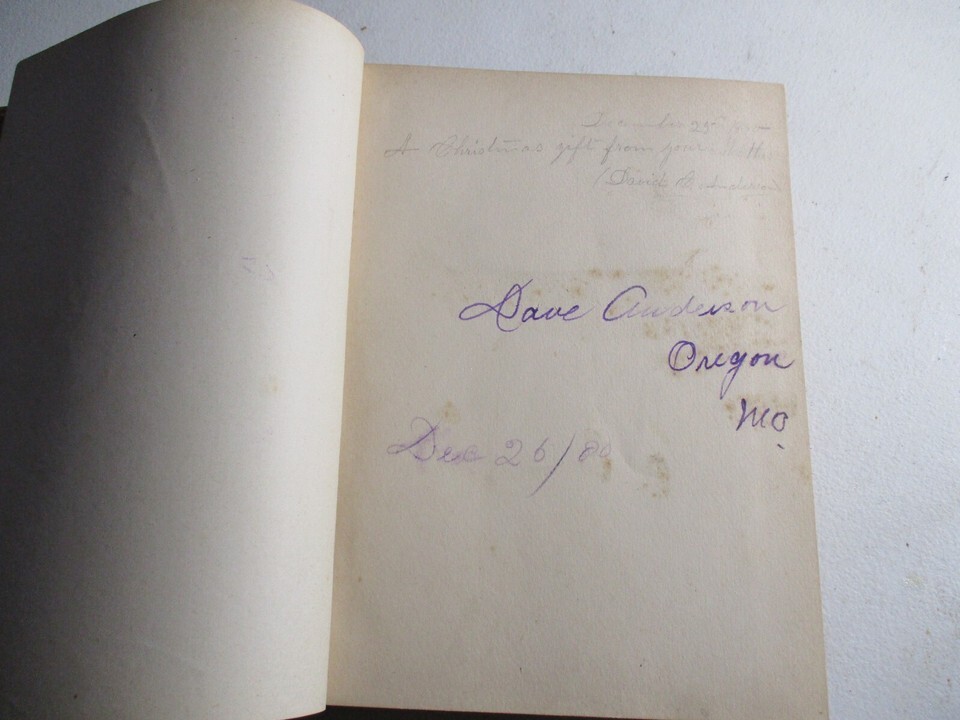 December 25th
A Christmas gift from your
(David Anderson
Dave Anderson
Oregon
Mo.
Dec 26/80